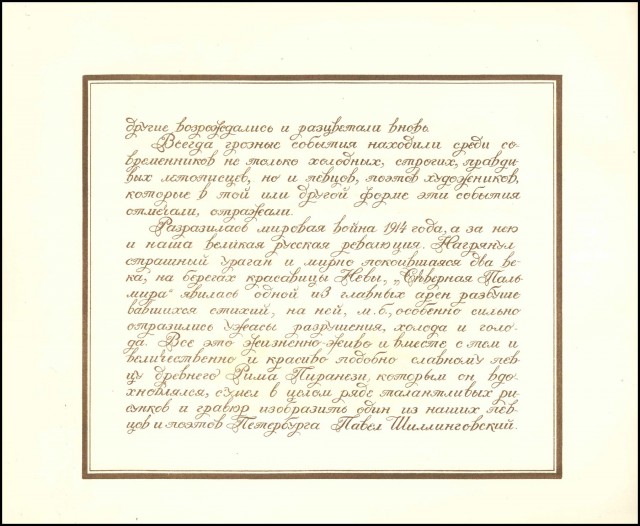 другие возрождались и разцветали вновь.
Всегда грозные события находили среди со-
временников не только холодных, строгих, правди-
вых летописцев, но и певцов, поэтов художников,
которые в той или другой форме эти события
отмечали, отражали.
Разразилась мировая война 1914 года, а за нею
и наша великая русская революция. Нагрянул
страшный ураган и мирно покоившаяся два ве-
ка, на берегах красавицы Невы, „Северная Паль-
мира" явилась одной из главных арен разбуше-
вавшихся стихий, на ней, м.б., особенно сильно
отразились ужасы разрушения, холода и голо-
да. Все это жизненно-живо и вместе с тем и
величественно и красиво подобно славному пев-
цу древнего Рима Пиранези, которым он вдо-
хновлялся, сумел в целом ряде талантливых ри-
сунков и гравюр изобразить один из наших пев-
цов и поэтов Петербурга Павел Шиллинговский.